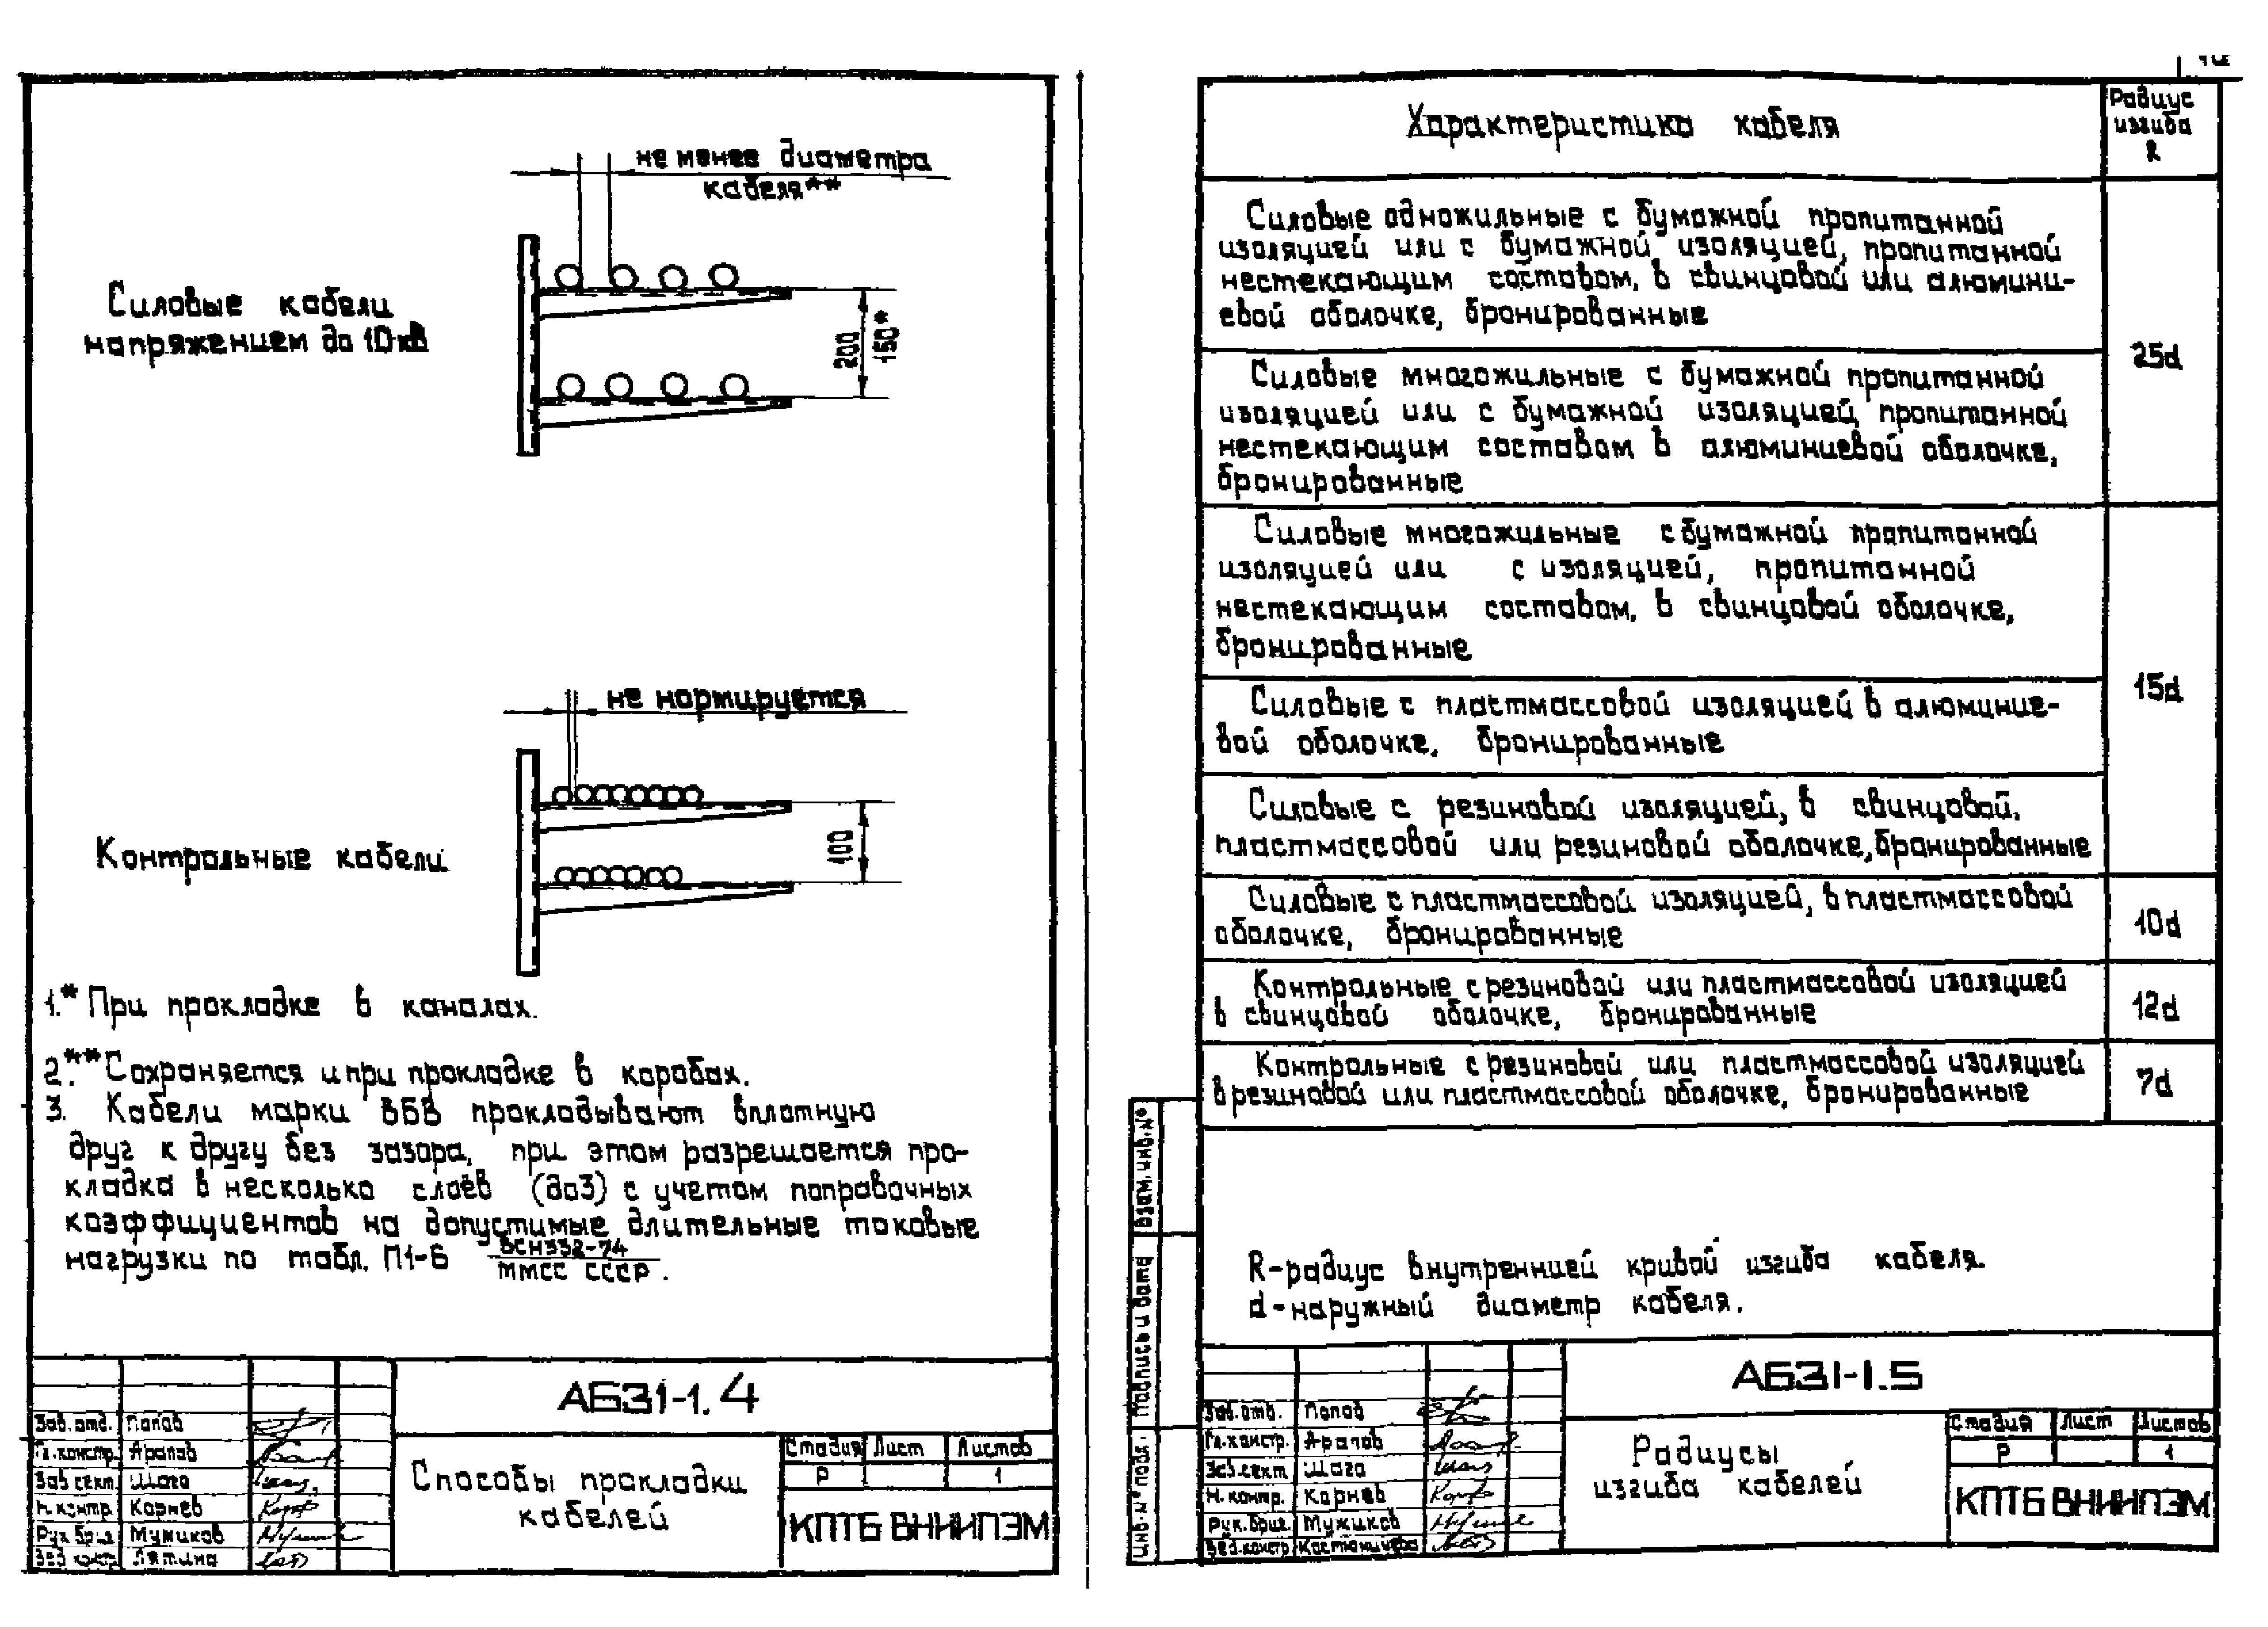 не менее диаметра
кабеля**
Силовые кабели
напряжением до 10кВ
200
150*
не нормируется
Контрольные кабели
100
1.* При прокладке в каналах.
2.** Сохраняется и при прокладке в коробах.
3. Кабели марки
прокладывают вплотную
друг к другу без зазора, при этом разрешается про-
кладка в несколько слоёв (до3) с учетом поправочных
коэффициентов на допустимые длительные токовые
нагрузки по табл. П1-6 ВСН332-74
ММСС СССР.
А631-1.4
Зав. отд. Попов
Гл. констр. Арапов
Зав сект. Шага
Н. контр. Корнев
Рук. бриг. Мужиков
Вед. констр. Лятина
Способы прокладки
кабелей
Стадия Лист Листов
Р 1
КПТБ ВНИИПЭМ
Характеристика кабеля
Радиус
изгиба
R
Силовые одножильные с бумажной пропитанной
изоляцией или с бумажной изоляцией, пропитанной
нестекающим составом, в свинцовой или алюмини-
евой оболочке, бронированные
25d
Силовые многожильные с бумажной пропитанной
изоляцией или с бумажной изоляцией, пропитанной
нестекающим составом в алюминиевой оболочке,
бронированные
Силовые многожильные с бумажной пропитанной
изоляцией или с изоляцией, пропитанной
нестекающим составом, в свинцовой оболочке,
бронированные
15d
Силовые с пластмассовой изоляцией в алюминие-
вой оболочке, бронированные
Силовые с резиновой изоляцией, в свинцовой,
пластмассовой или резиновой оболочке, бронированные
Силовые с пластмассовой изоляцией, в пластмассовой
оболочке, бронированные
10d
Контрольные с резиновой или пластмассовой изоляцией
в свинцовой оболочке, бронированные
12d
Контрольные с резиновой или пластмассовой изоляцией
в резиновой или пластмассовой оболочке, бронированные
7d
R-радиус внутренней кривой изгиба кабеля.
d-наружный диаметр кабеля.
Взам. инв. №
Подпись и дата
Инв. № подл.
А631-1.5
Зав. отд. Попов
Гл. констр. Арапов
Зав. сект Шага
Н. контр. Корнев
Рук. бриг. Мужиков
Вед. констр
Радиусы
изгиба кабелей
Стадия Лист Листов
Р 1
КПТБ ВНИИПЭМ